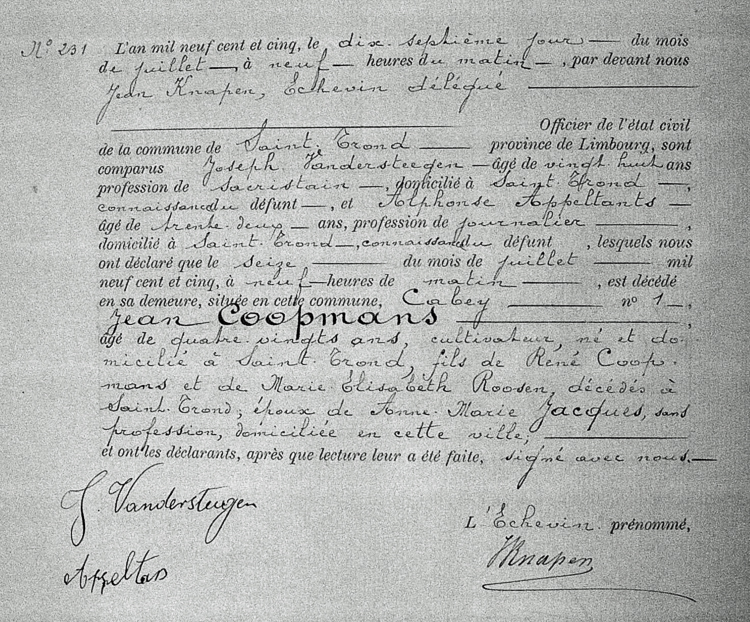 N° 231 L'an mil neuf cent et cinq, le dix-septième jour — du mois
de juillet —, à neuf — heures du matin —, par devant nous
Jean Knapen, Echevin délégué —
Officier de l'état civil
de la commune de Saint-Trond — province de Limbourg, sont
comparus Joseph Vandersteegen — âgé de vingt huit ans
profession de sacristain —, domicilié à Saint-Trond —,
connaissance du défunt —, et Alphonse Appeltants —
âgé de trente-deux — ans, profession de journalier —,
domicilié à Saint-Trond —, connaissance du défunt, lesquels nous
ont déclaré que le seize — du mois de juillet — mil
neuf cent et cinq, à neuf — heures de matin —, est décédé
en sa demeure, située en cette commune, Cabey — n° 1 —,
Jean Coopmans —,
âgé de quatre-vingts ans, cultivateur, né et do-
micilié à Saint-Trond, fils de René Coop-
mans et de Marie-Élisabeth Roosen, décédés à
Saint-Trond; époux de Anne-Marie Jacques, sans
profession, domiciliée en cette ville, —
et ont les déclarants, après que lecture leur a été faite, signé avec nous. —
J. Vandersteegen
L'Echevin prénommé,
JKnapen
Appeltans